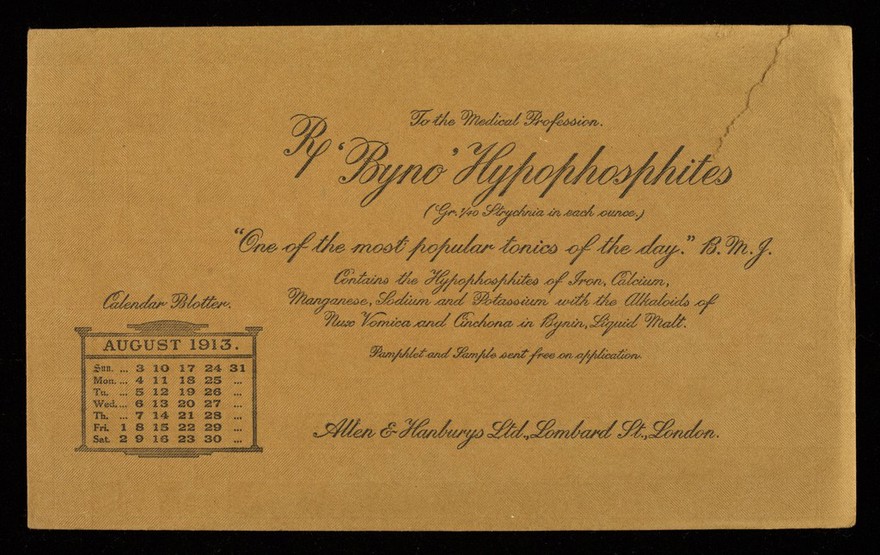 To the Medical Profession.
℞ 'Byno' Hypophosphites
(Gr. 1/40 Strychnia in each ounce.)
"One of the most popular tonics of the day." B.M.J.
Contains the Hypophosphites of Iron, Calcium,
Manganese, Sodium and Potassium with the Alkaloids of
Nux Vomica and Cinchona in Bynin, Liquid Malt.
Pamphlet and Sample sent free on application.
Allen & Hanburys Ltd., Lombard St., London.
Calendar Blotter.
AUGUST 1913.
Sun. ... 3 10 17 24 31
Mon. ... 4 11 18 25 ...
Tu. ... 5 12 19 26 ...
Wed. ... 6 13 20 27 ...
Th. ... 7 14 21 28 ...
Fri. 1 8 15 22 29 ...
Sat. 2 9 16 23 30 ...